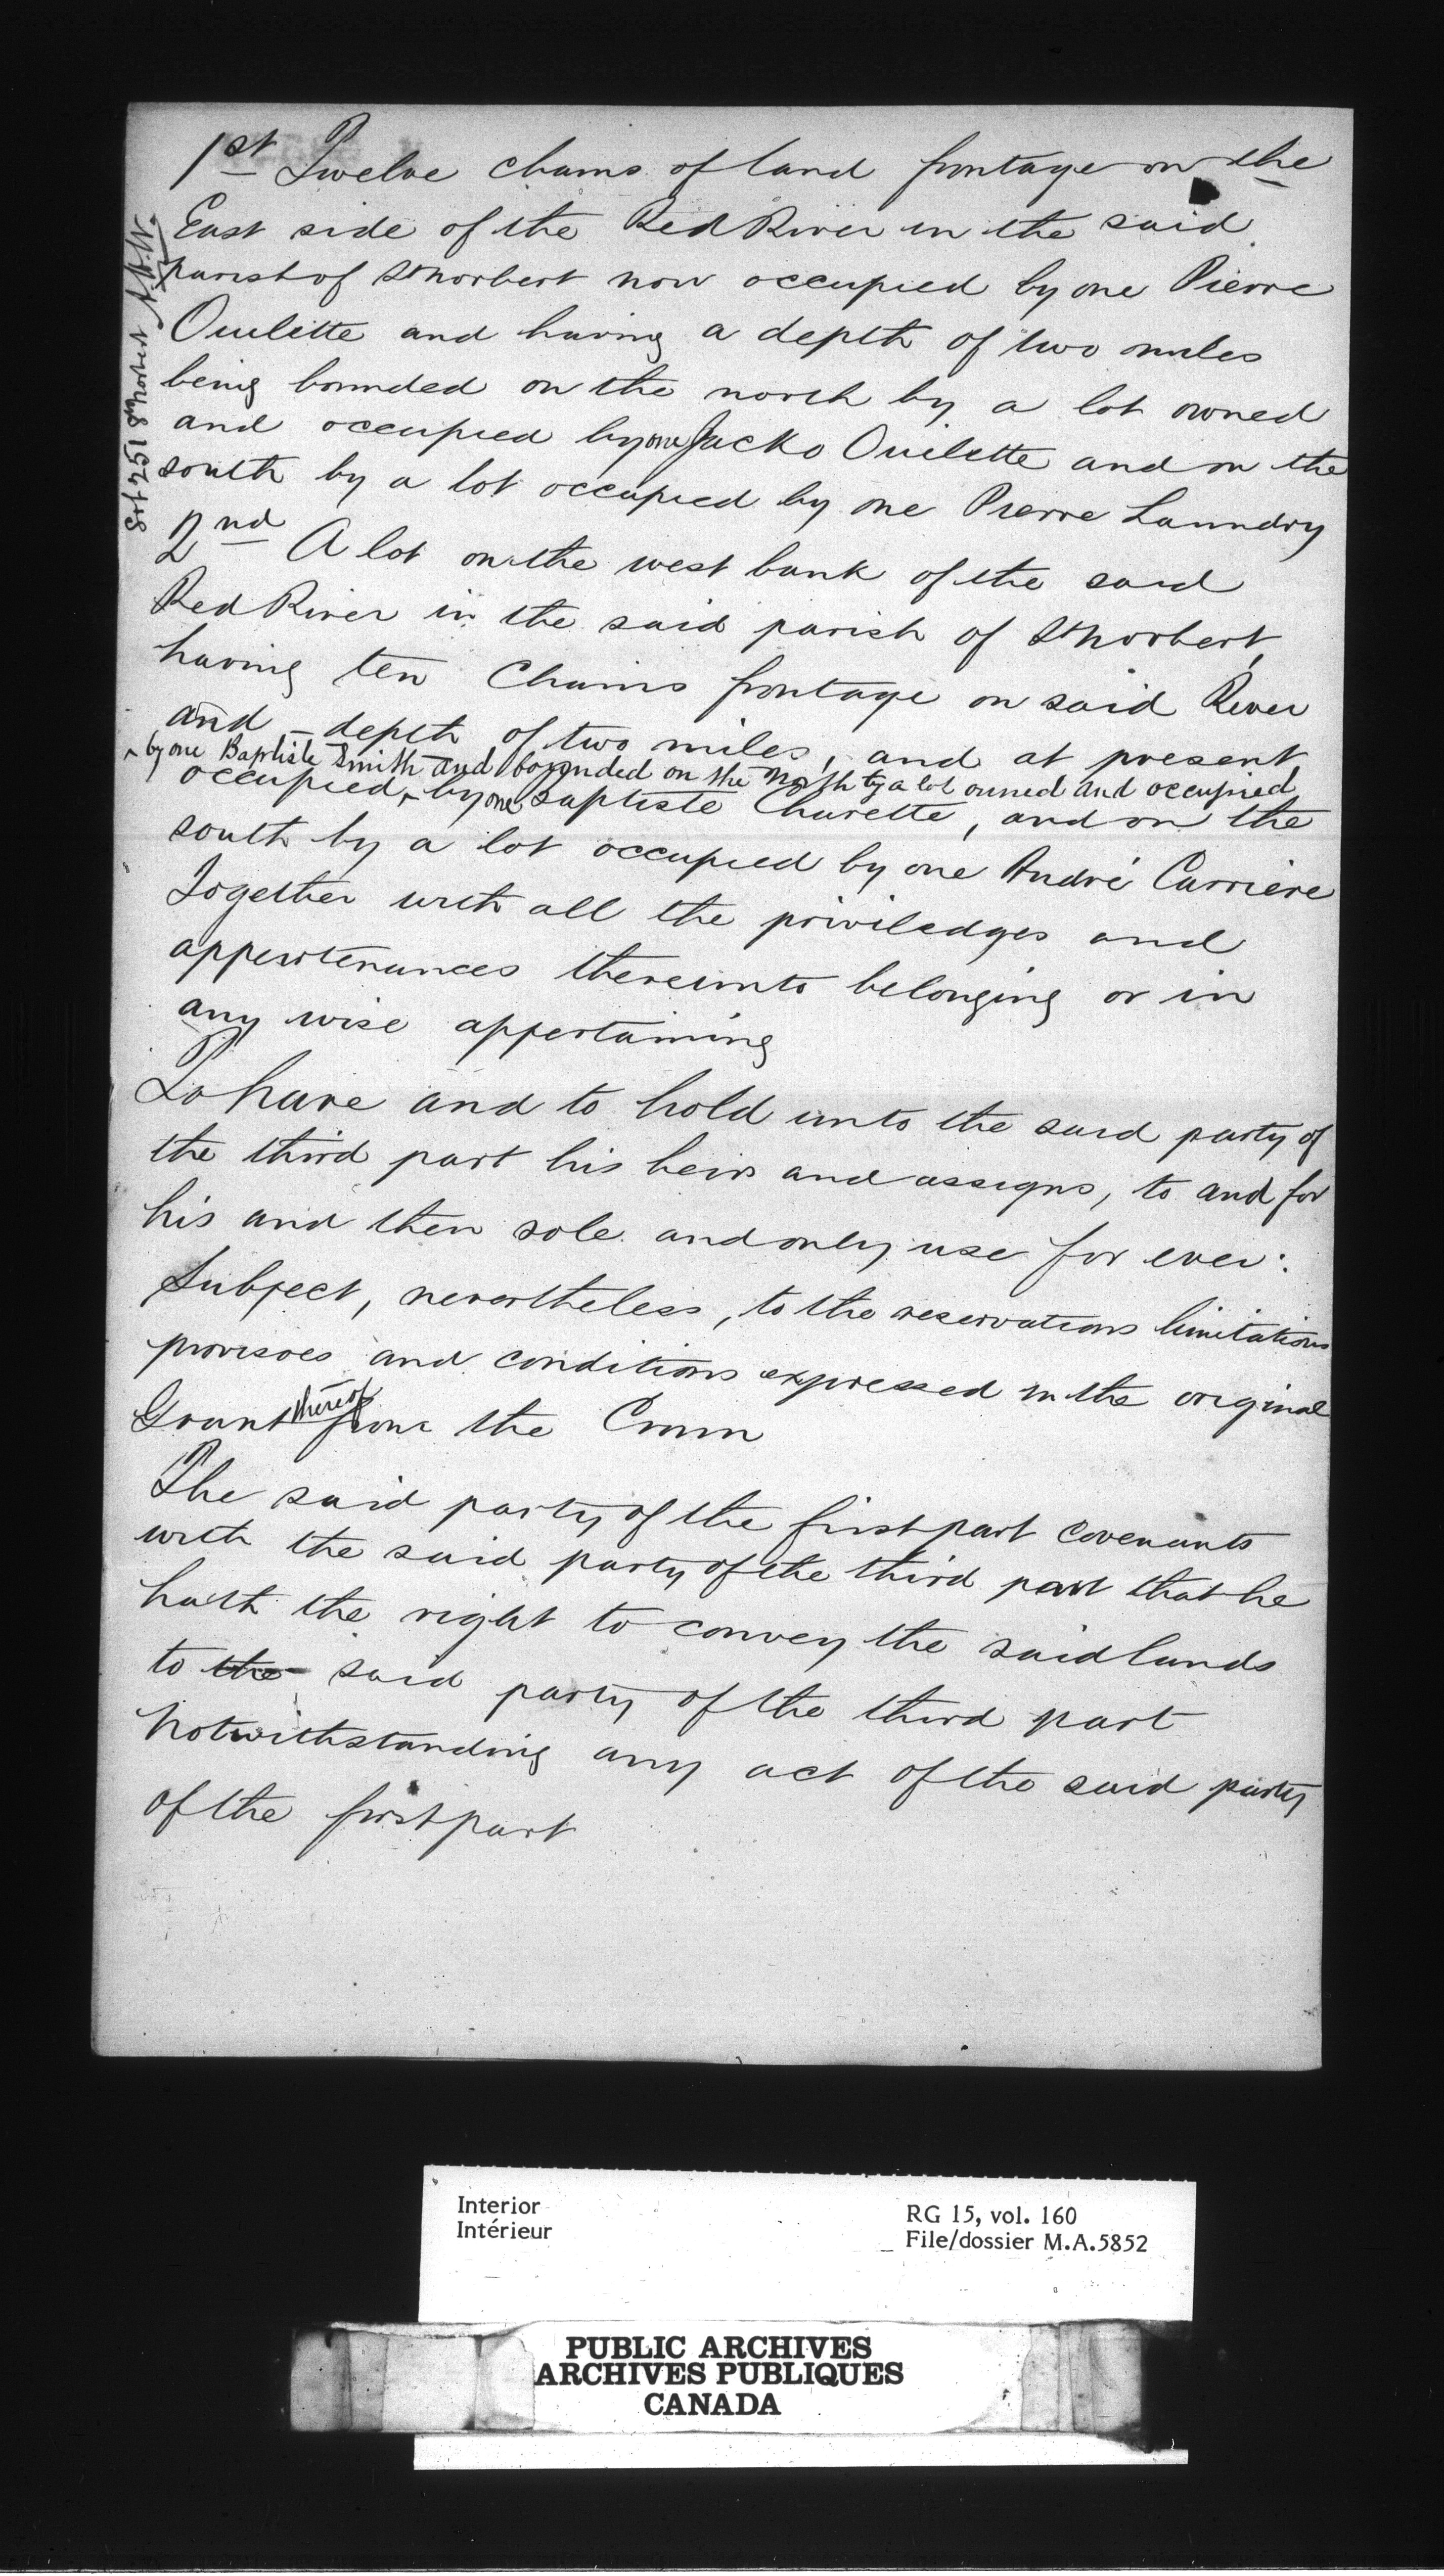 1st Twelve chains of land frontage on the
East side of the Red River in the said
parish of St Norbert now occupied by one Pierre
Ouilette and having a depth of two miles
being bounded on the north by a lot owned
and occupied by one Jacko Ouilette and on the
south by a lot occupied by one Pierre Laundry
2nd A lot on the west bank of the said
Red River in the said parish of St Norbert,
having ten Chains frontage on said River
and - depth of two miles, and at present
by one Baptiste Smith and bounded on the North by a lot owned and occupied
occupied by one Baptiste Charette, and on the
south by a lot occupied by one André Carriere
Together with all the priviledges and
appurtenances thereunto belonging or in
any wise appertaining
To have and to hold unto the said party of
the third part his heirs and assigns, to and for
his and their sole and only use for ever:
Subject, nevertheless, to the reservations limitations
provisoes and conditions expressed in the original
Grant thereof from the Crown
The said party of the first part covenants
with the said party of the third part that he
hath the right to convey the said lands
to the said party of the third part
notwithstanding any act of the said party
of the first part
Lot 251 St Norbert
Interior
Intérieur
RG 15, vol. 160
File/dossier M.A.5852
PUBLIC ARCHIVES
ARCHIVES PUBLIQUES
CANADA